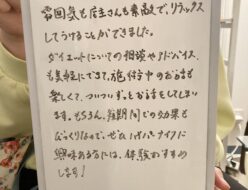 雰囲気も店主さんも素敵で、リラックス
してうけることができました。
ダイエットについての相談やアドバイス
も気軽にできて、施術中のお話も
楽しくて、ついついずっとお話をしてしまい
ます。もちろん、短期間での効果も
びっくりなので、ぜひハイパーナイフに
興味ある方には、体験おすすめ
します!